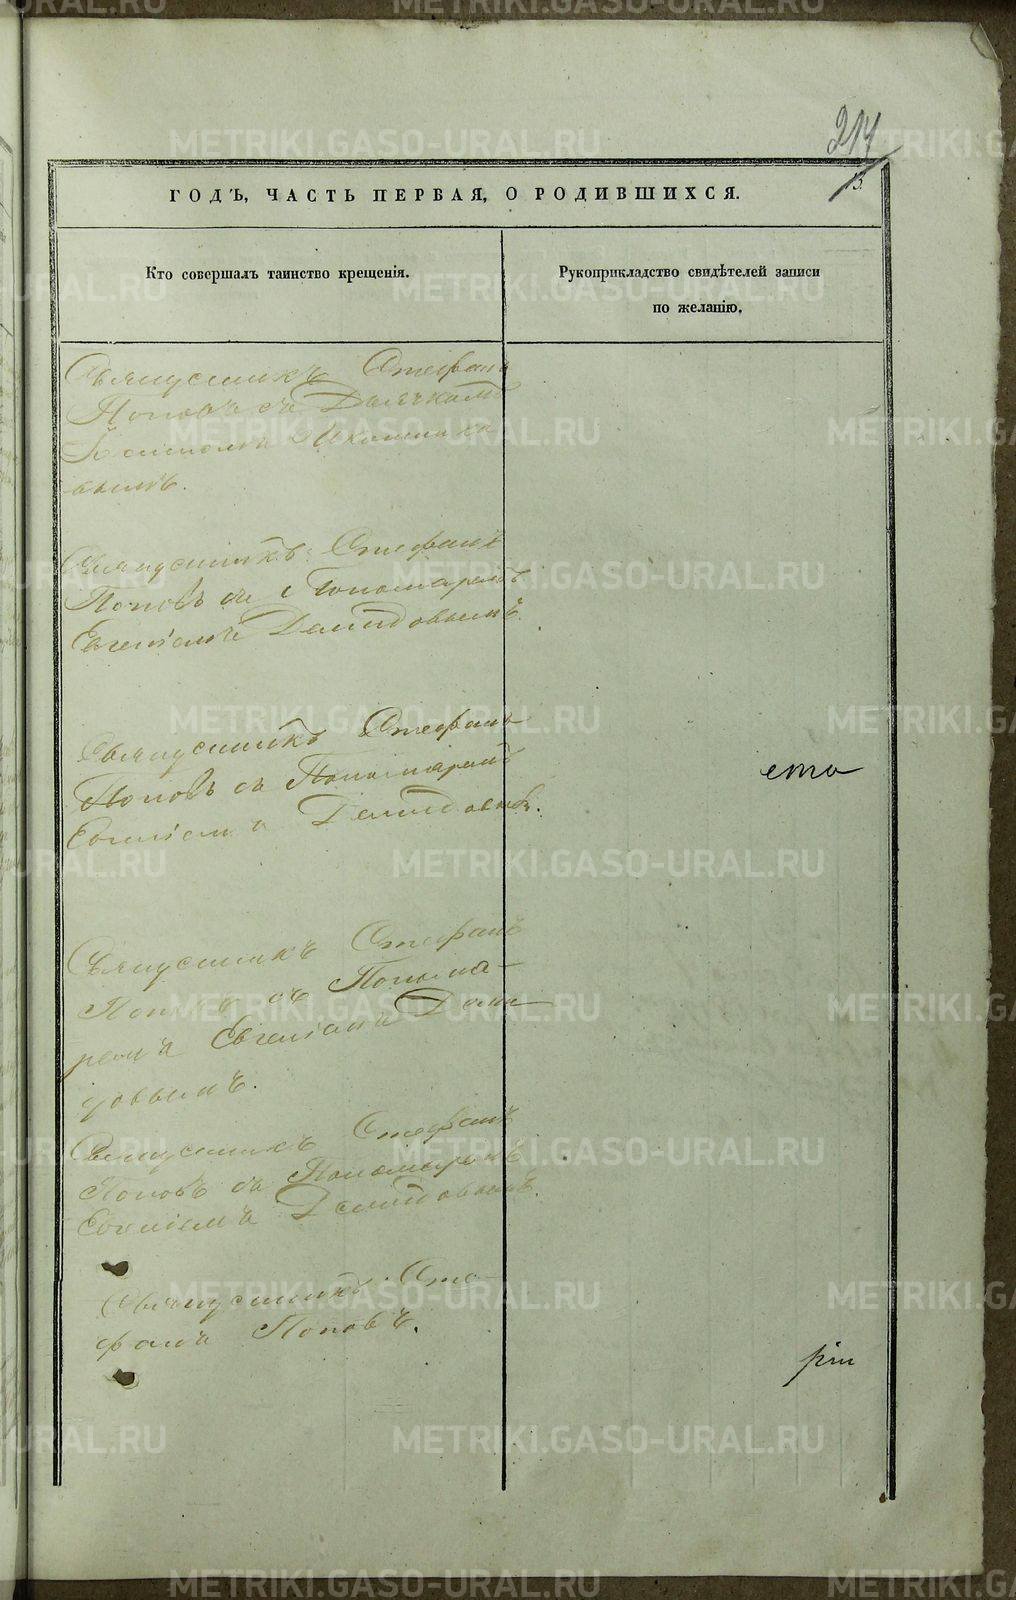 217
13.
ГОДЪ, ЧАСТЬ ПЕРВАЯ, О РОДИВШИХСЯ.
Кто совершалъ таинство крещенія.
Рукоприкладство свидѣтелей записи
по желанію.
Священникъ Стефанъ
Поповъ съ Дьячкомъ
вымъ.
Священникъ Стефанъ
Поповъ съ Пономаремъ
Евгеніемъ Демидовымъ.
Священникъ Стефанъ
Поповъ съ Пономаремъ
Евгеніемъ Демидовымъ.
ста
Священникъ Стефанъ
Поповъ съ Понома-
ремъ Евгеніемъ Деми-
довымъ.
Священникъ Стефанъ
Поповъ съ Пономаремъ
Евгеніемъ Демидовымъ.
Священникъ Сте-
фанъ Поповъ.
METRIKI.GASO-URAL.RU